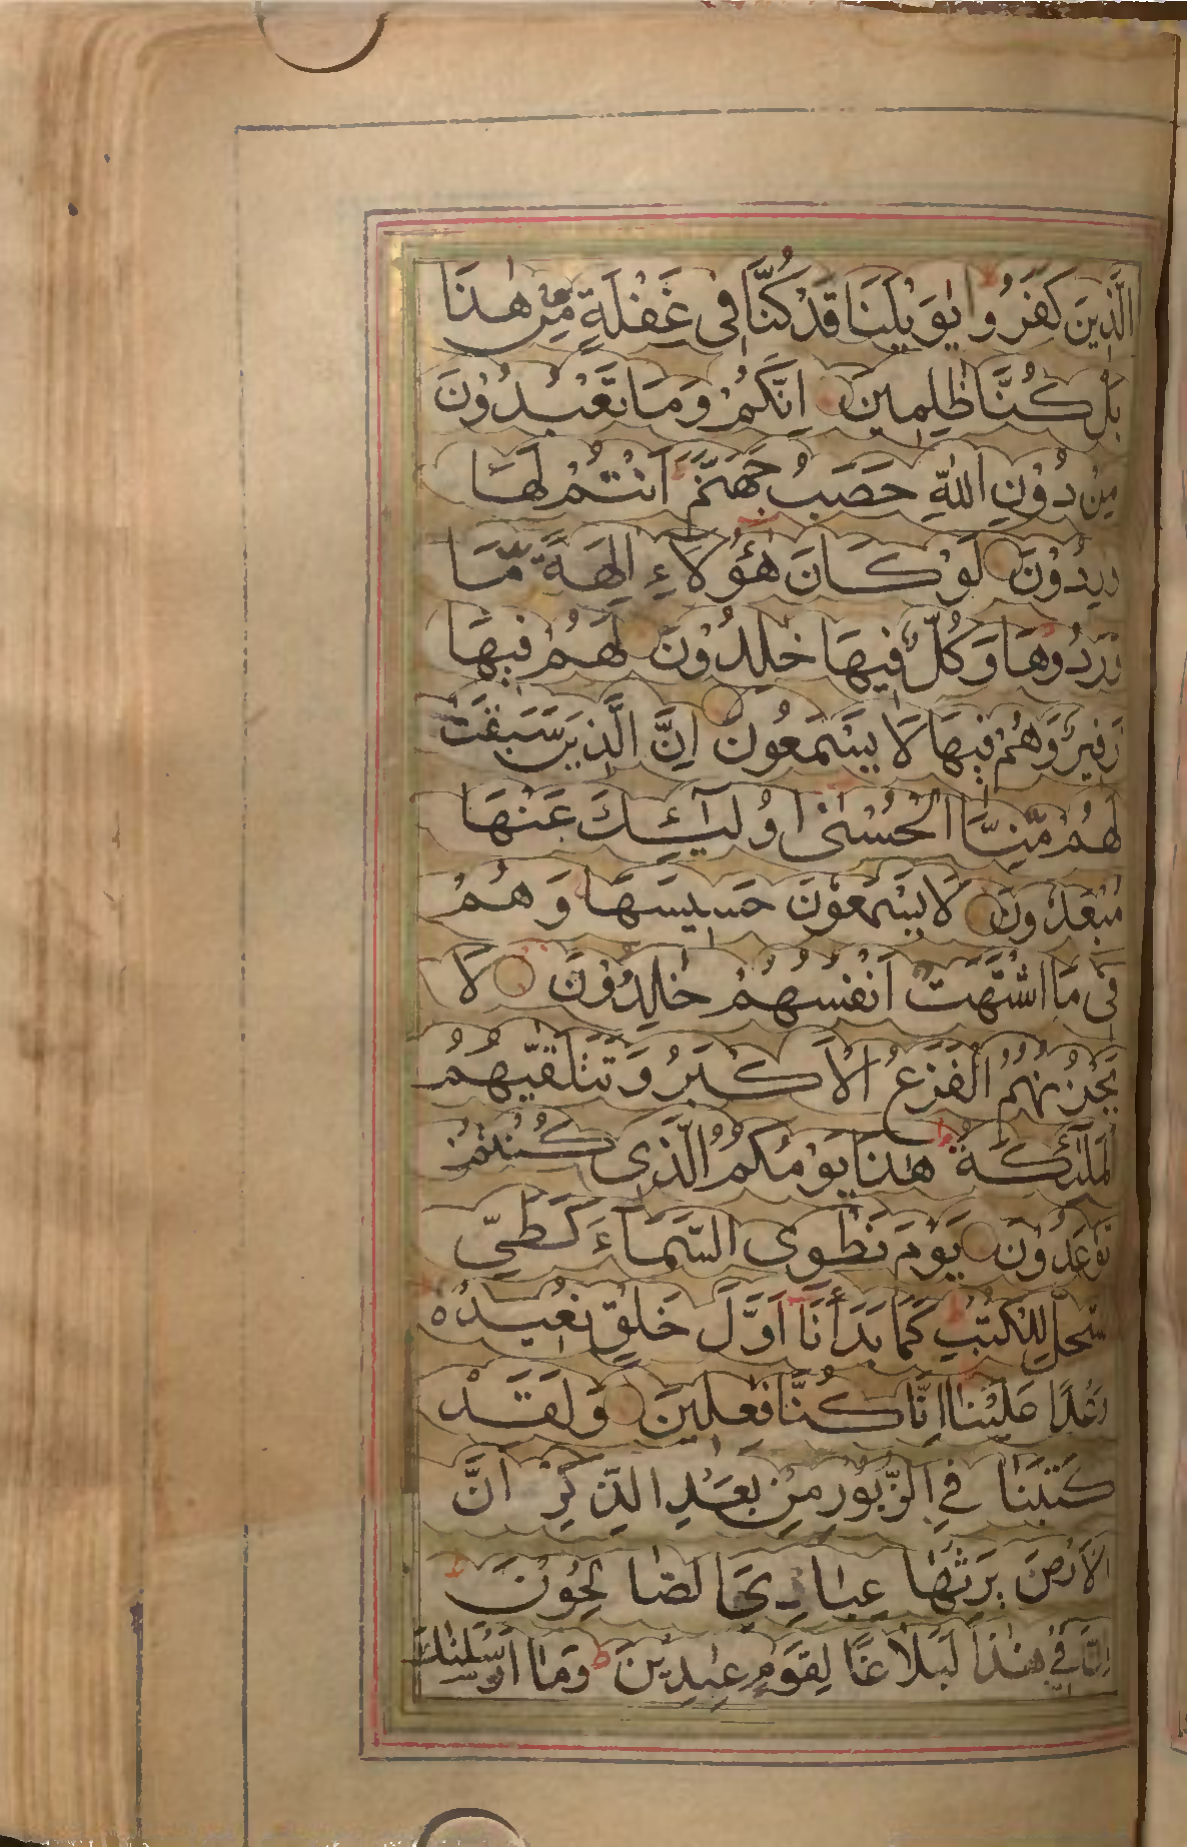 الَّذِينَ كَفَرُوا يٰوَيْلَنَا قَدْ كُنَّا فِى غَفْلَةٍ مِّنْ هٰذَا
بَلْ كُنَّا ظٰلِمِينَ اِنَّكُمْ وَمَا تَعْبُدُوْنَ
مِنْ دُوْنِ اللّٰهِ حَصَبُ جَهَنَّمَ اَنْتُمْ لَهَا
رِدُوْنَ لَوْ كَانَ هٰٓؤُلَآءِ اٰلِهَةً مَّا
وَرَدُوْهَا وَكُلٌّ فِيهَا خٰلِدُوْنَ لَهُمْ فِيهَا
زَفِيرٌ وَهُمْ فِيهَا لَا يَسْمَعُونَ اِنَّ الَّذِينَ سَبَقَتْ
لَهُمْ مِّنَّا الْحُسْنٰى اُولٰٓئِكَ عَنْهَا
مُبْعَدُونَ لَا يَسْمَعُوْنَ حَسِيسَهَا وَهُمْ
فِى مَا اشْتَهَتْ اَنْفُسُهُمْ خٰلِدُوْنَ لَا
يَحْزُنُهُمُ الْفَزَعُ الْاَكْبَرُ وَتَتَلَقّٰيهُمُ
الْمَلٰٓئِكَةُ هٰذَا يَوْمُكُمُ الَّذِى كُنْتُمْ
تُوعَدُوْنَ يَوْمَ نَطْوِى السَّمَآءَ كَطَىِّ
السِّجِلِّ لِلْكُتُبِ كَمَا بَدَأْنَا اَوَّلَ خَلْقٍ نُعِيدُهُ
وَعْدًا عَلَيْنَا اِنَّا كُنَّا فٰعِلِينَ وَلَقَدْ
كَتَبْنَا فِى الزَّبُوْرِ مِنْ بَعْدِ الذِّكْرِ اَنَّ
الْاَرْضَ يَرِثُهَا عِبَادِىَ الصَّالِحُوْنَ
اِنَّ فِى هٰذَا لَبَلَاغًا لِقَوْمٍ عٰبِدِيْنَ وَمَا اَرْسَلْنٰكَ